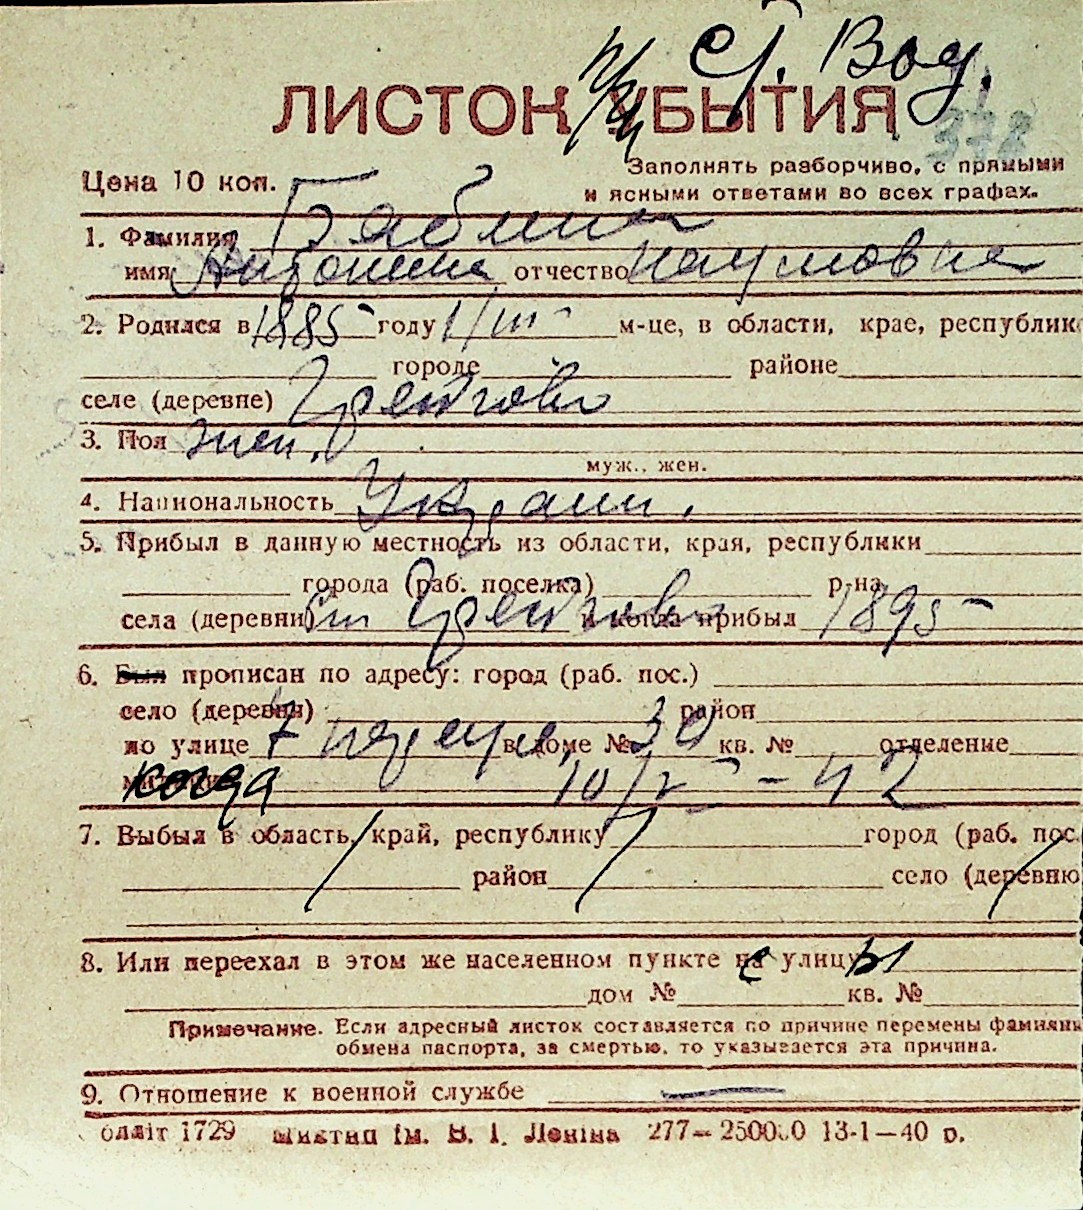 Ст. Вод.
ЛИСТОК УБЫТИЯ
378
Цена 10 коп.
Заполнять разборчиво, с прямыми
и ясными ответами во всех графах.
1. Фамилия Баблина
имя Антонина отчество Наумовна
2. Родился в 1885 году 1/III м-це, в области, крае, республике
городе районе
селе (деревне) Грейгово
3. Пол жен.
муж., жен.
4. Национальность Украин.
5. Прибыл в данную местность из области, края, республики
города (раб. поселка) р-на
села (деревни) Ст Грейгово и когда прибыл 1895
6. Был прописан по адресу: город (раб. пос.)
село (деревня) район
по улице 7 попереч. в доме № 30 кв. № отделение
когда 10/V - 42
7. Выбыл в область, край, республику город (раб. пос.
район село (деревню
8. Или переехал в этом же населенном пункте с улицы
дом № кв. №
Примечание. Если адресный листок составляется по причине перемены фамилии
обмена паспорта, за смертью, то указывается эта причина.
9. Отношение к военной службе —
облліт 1729 Миктип ім. В. І. Леніна 277—250000 13-1—40 р.